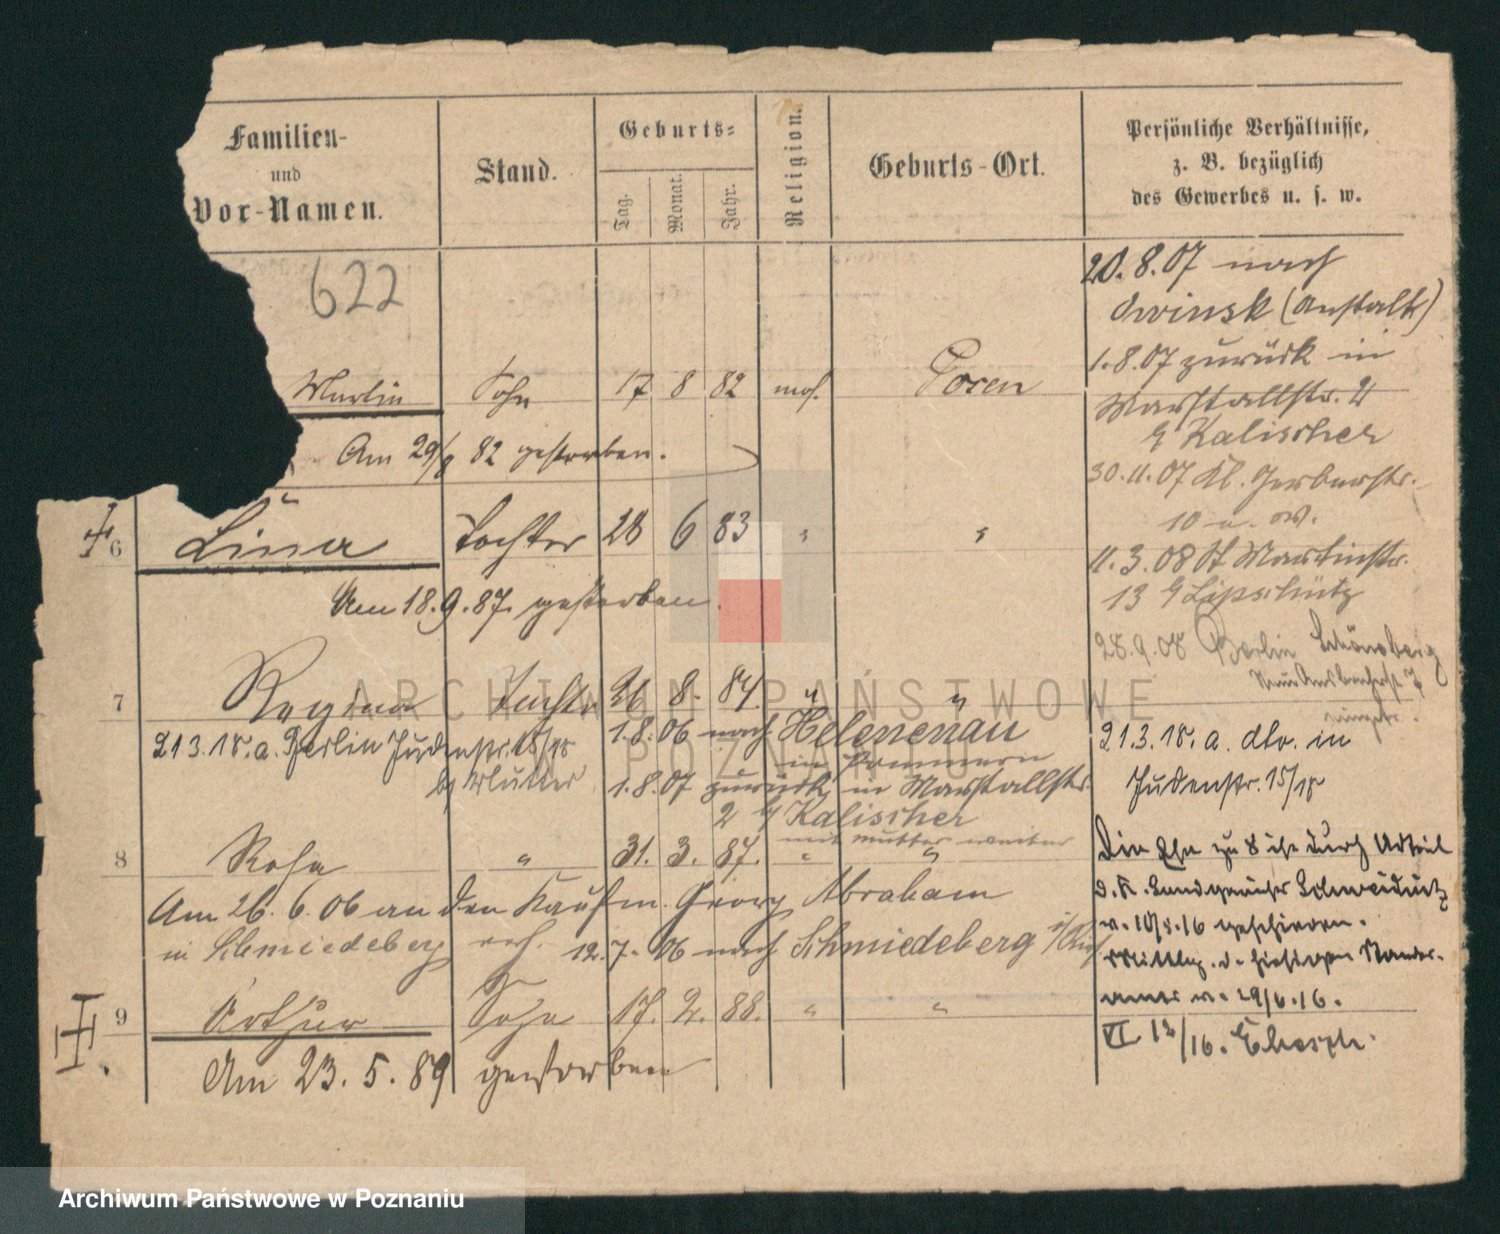 Familien-
und
Vor-Namen.
Stand.
Geburts-
Tag.
Monat.
Jahr.
Religion.
Geburts-Ort.
Persönliche Verhältnisse,
z. B. bezüglich
des Gewerbes u. s. w.
622
20. 8. 07 nach
Owinsk (Anstalt)
1. 8. 07 zurück in
Martin Sohn 17 8 82 mos. Posen
Marstallstr. 2
b/ Kalischer
Am 29/8 82 gestorben.
30. 11. 07 Kl. Gerberstr.
10 u. W.
6 Lina Tochter 28 6 83 " "
11. 3. 08 St Martinstr.
13 b/ Lipschütz
Am 18. 9. 87. gestorben.
28. 9. 08 Berlin Schöneberg
7 Regina Tochter 26 8. 84. " "
21 3. 18. a. Berlin Judenstr. 15/18
b/ Mutter
1. 8. 06 nach Helenenau
in Pommern
1. 8. 07 zurück in Marstallstr.
2 b/ Kalischer
mit Mutter weiter
21. 3. 18. a. dlv. in
Judenstr. 15/18
8 Rosa " 31. 3. 87. " "
Am 26. 6. 06 an den Kaufm. Georg Abraham
in Schmiedeberg verh. 12. 7. 06 nach Schmiedeberg
Die Ehe zu 8 ist durch Urteil
d. K. Landgerichts Schweidnitz
v. 10/5. 16 geschieden.
Mittlg. d. hiesigen Standes-
amts v. 29/6. 16.
VI 12/16.
9 Arthur Sohn 17. 2. 88. " "
Am 23. 5. 89 gestorben
ARCHIWUM PAŃSTWOWE
W POZNANIU
Archiwum Państwowe w Poznaniu